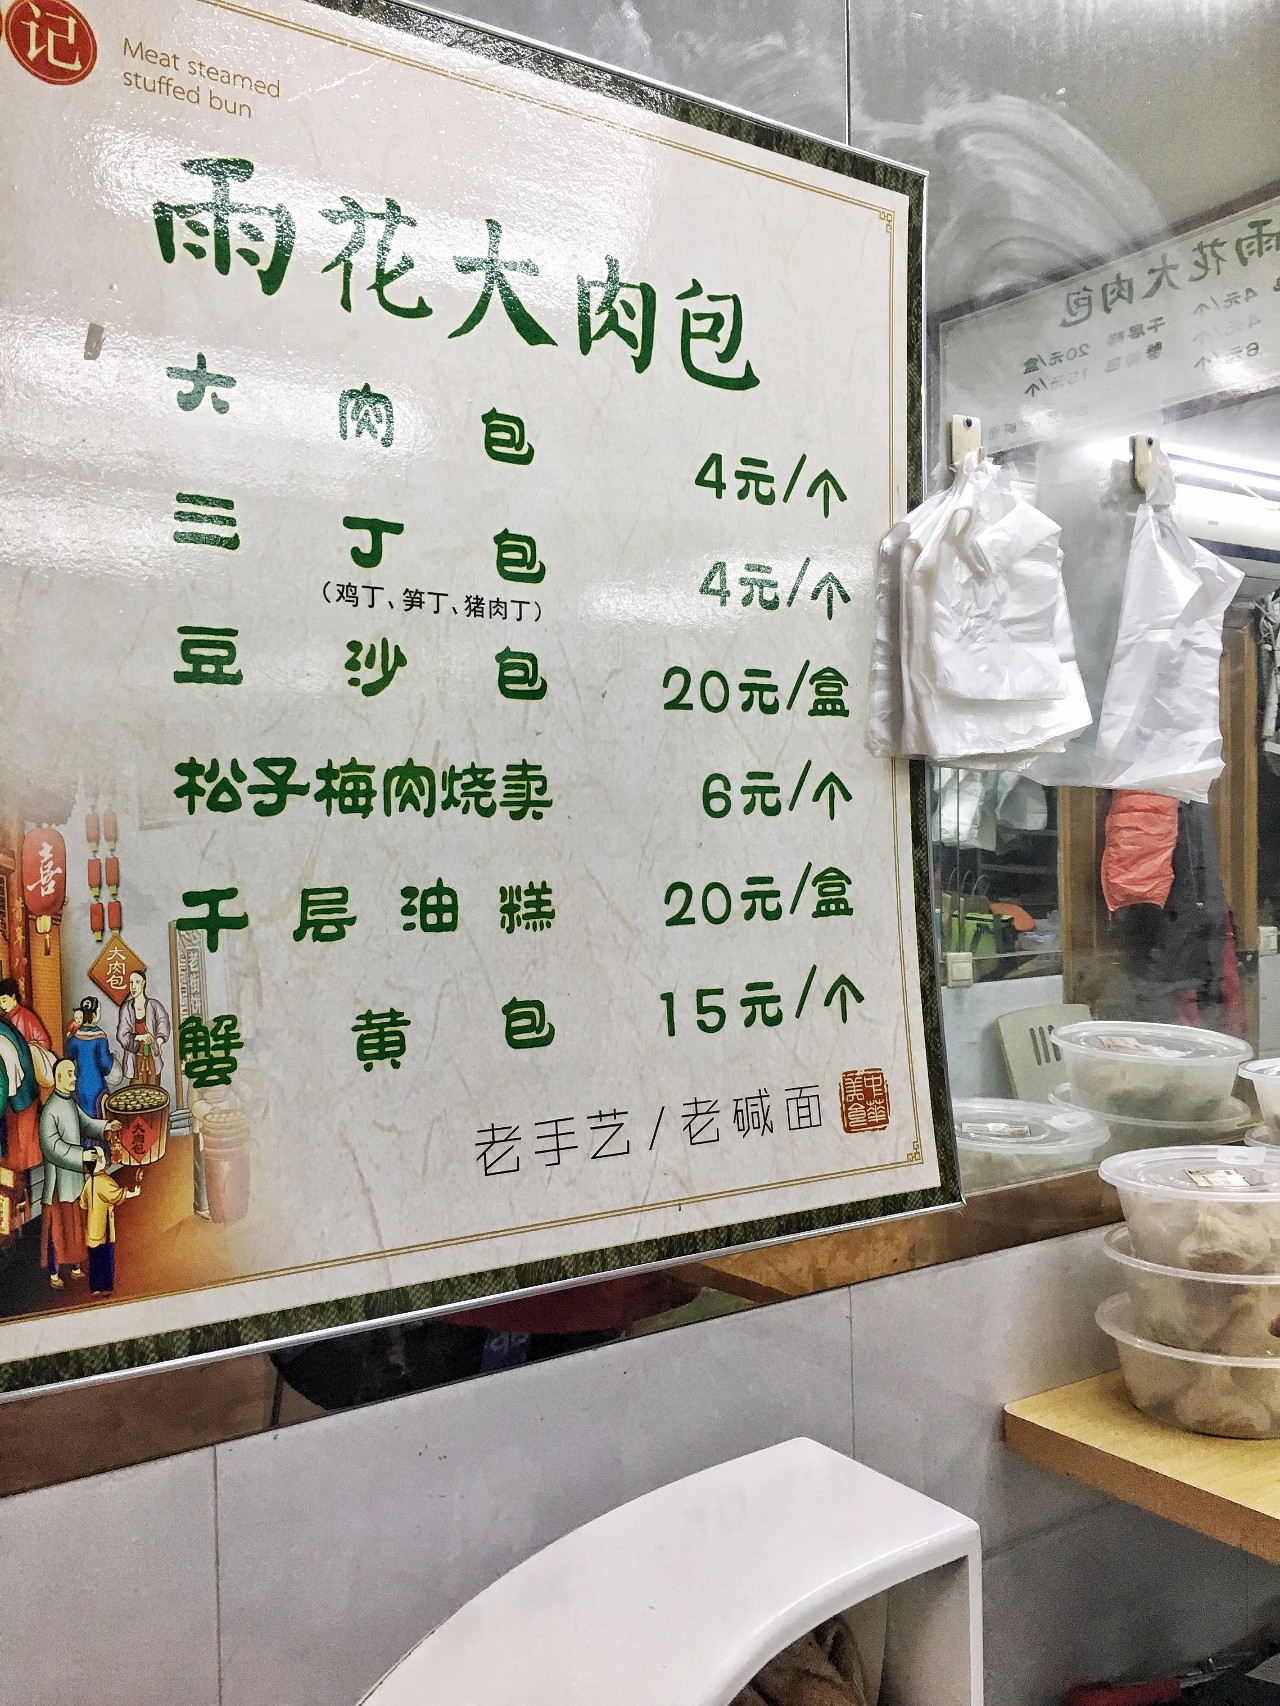 记
Meat steamed
stuffed bun
雨花大肉包
大肉包 4元/个
三丁包 4元/个
（鸡丁、笋丁、猪肉丁）
豆沙包 20元/盒
松子梅肉烧卖 6元/个
千层油糕 20元/盒
蟹黄包 15元/个
老手艺/老碱面
中华美食
喜
大肉包
大肉包